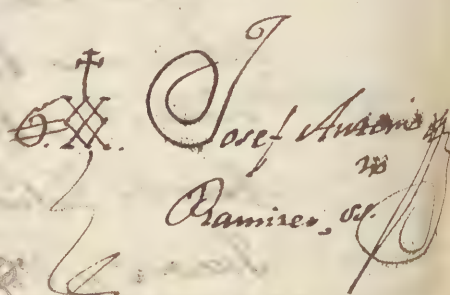 Josef Antonio
Ramirez,